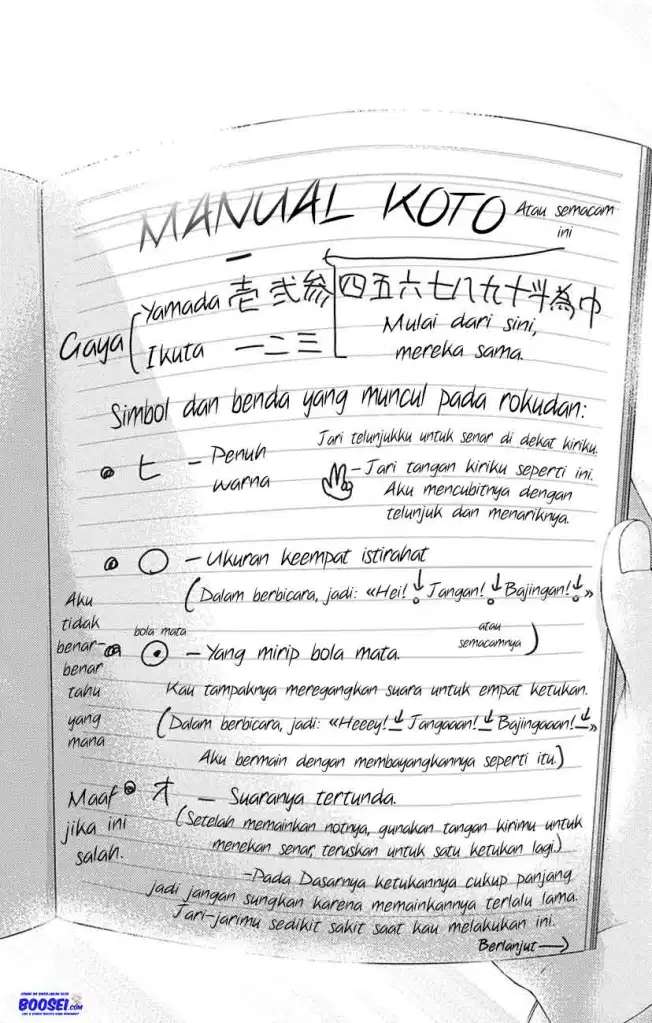 MANUAL KOTO
Atau semacam
ini
Gaya
Yamada 壱 弐 参 四五六七八九十斗為巾
Ikuta 一二三
Mulai dari sini,
mereka sama.
Simbol dan benda yang muncul pada rokudan:
ヒ – Penuh
warna
Jari telunjukku untuk senar di dekat kiriku.
– Jari tangan kiriku seperti ini.
Aku mencubitnya dengan
telunjuk dan menariknya.
○ – Ukuran keempat istirahat
(Dalam berbicara, jadi: «Hei! Jangan! Bajingan!»
atau
semacamnya)
Aku
tidak
benar-
benar
tahu
yang
mana
bola mata
– Yang mirip bola mata.
Kau tampaknya meregangkan suara untuk empat ketukan.
(Dalam berbicara, jadi: «Heeey! Jangaaan! Bajingaaan!»
Aku bermain dengan membayangkannya seperti itu.)
Maaf
jika ini
salah.
オ – Suaranya tertunda.
(Setelah memainkan notnya, gunakan tangan kirimu untuk
menekan senar, teruskan untuk satu ketukan lagi.)
-Pada Dasarnya ketukannya cukup panjang
jadi jangan sungkan karena memainkannya terlalu lama.
Jari-jarimu sedikit sakit saat kau melakukan ini.
Berlanjut→
BOOSEI.COM